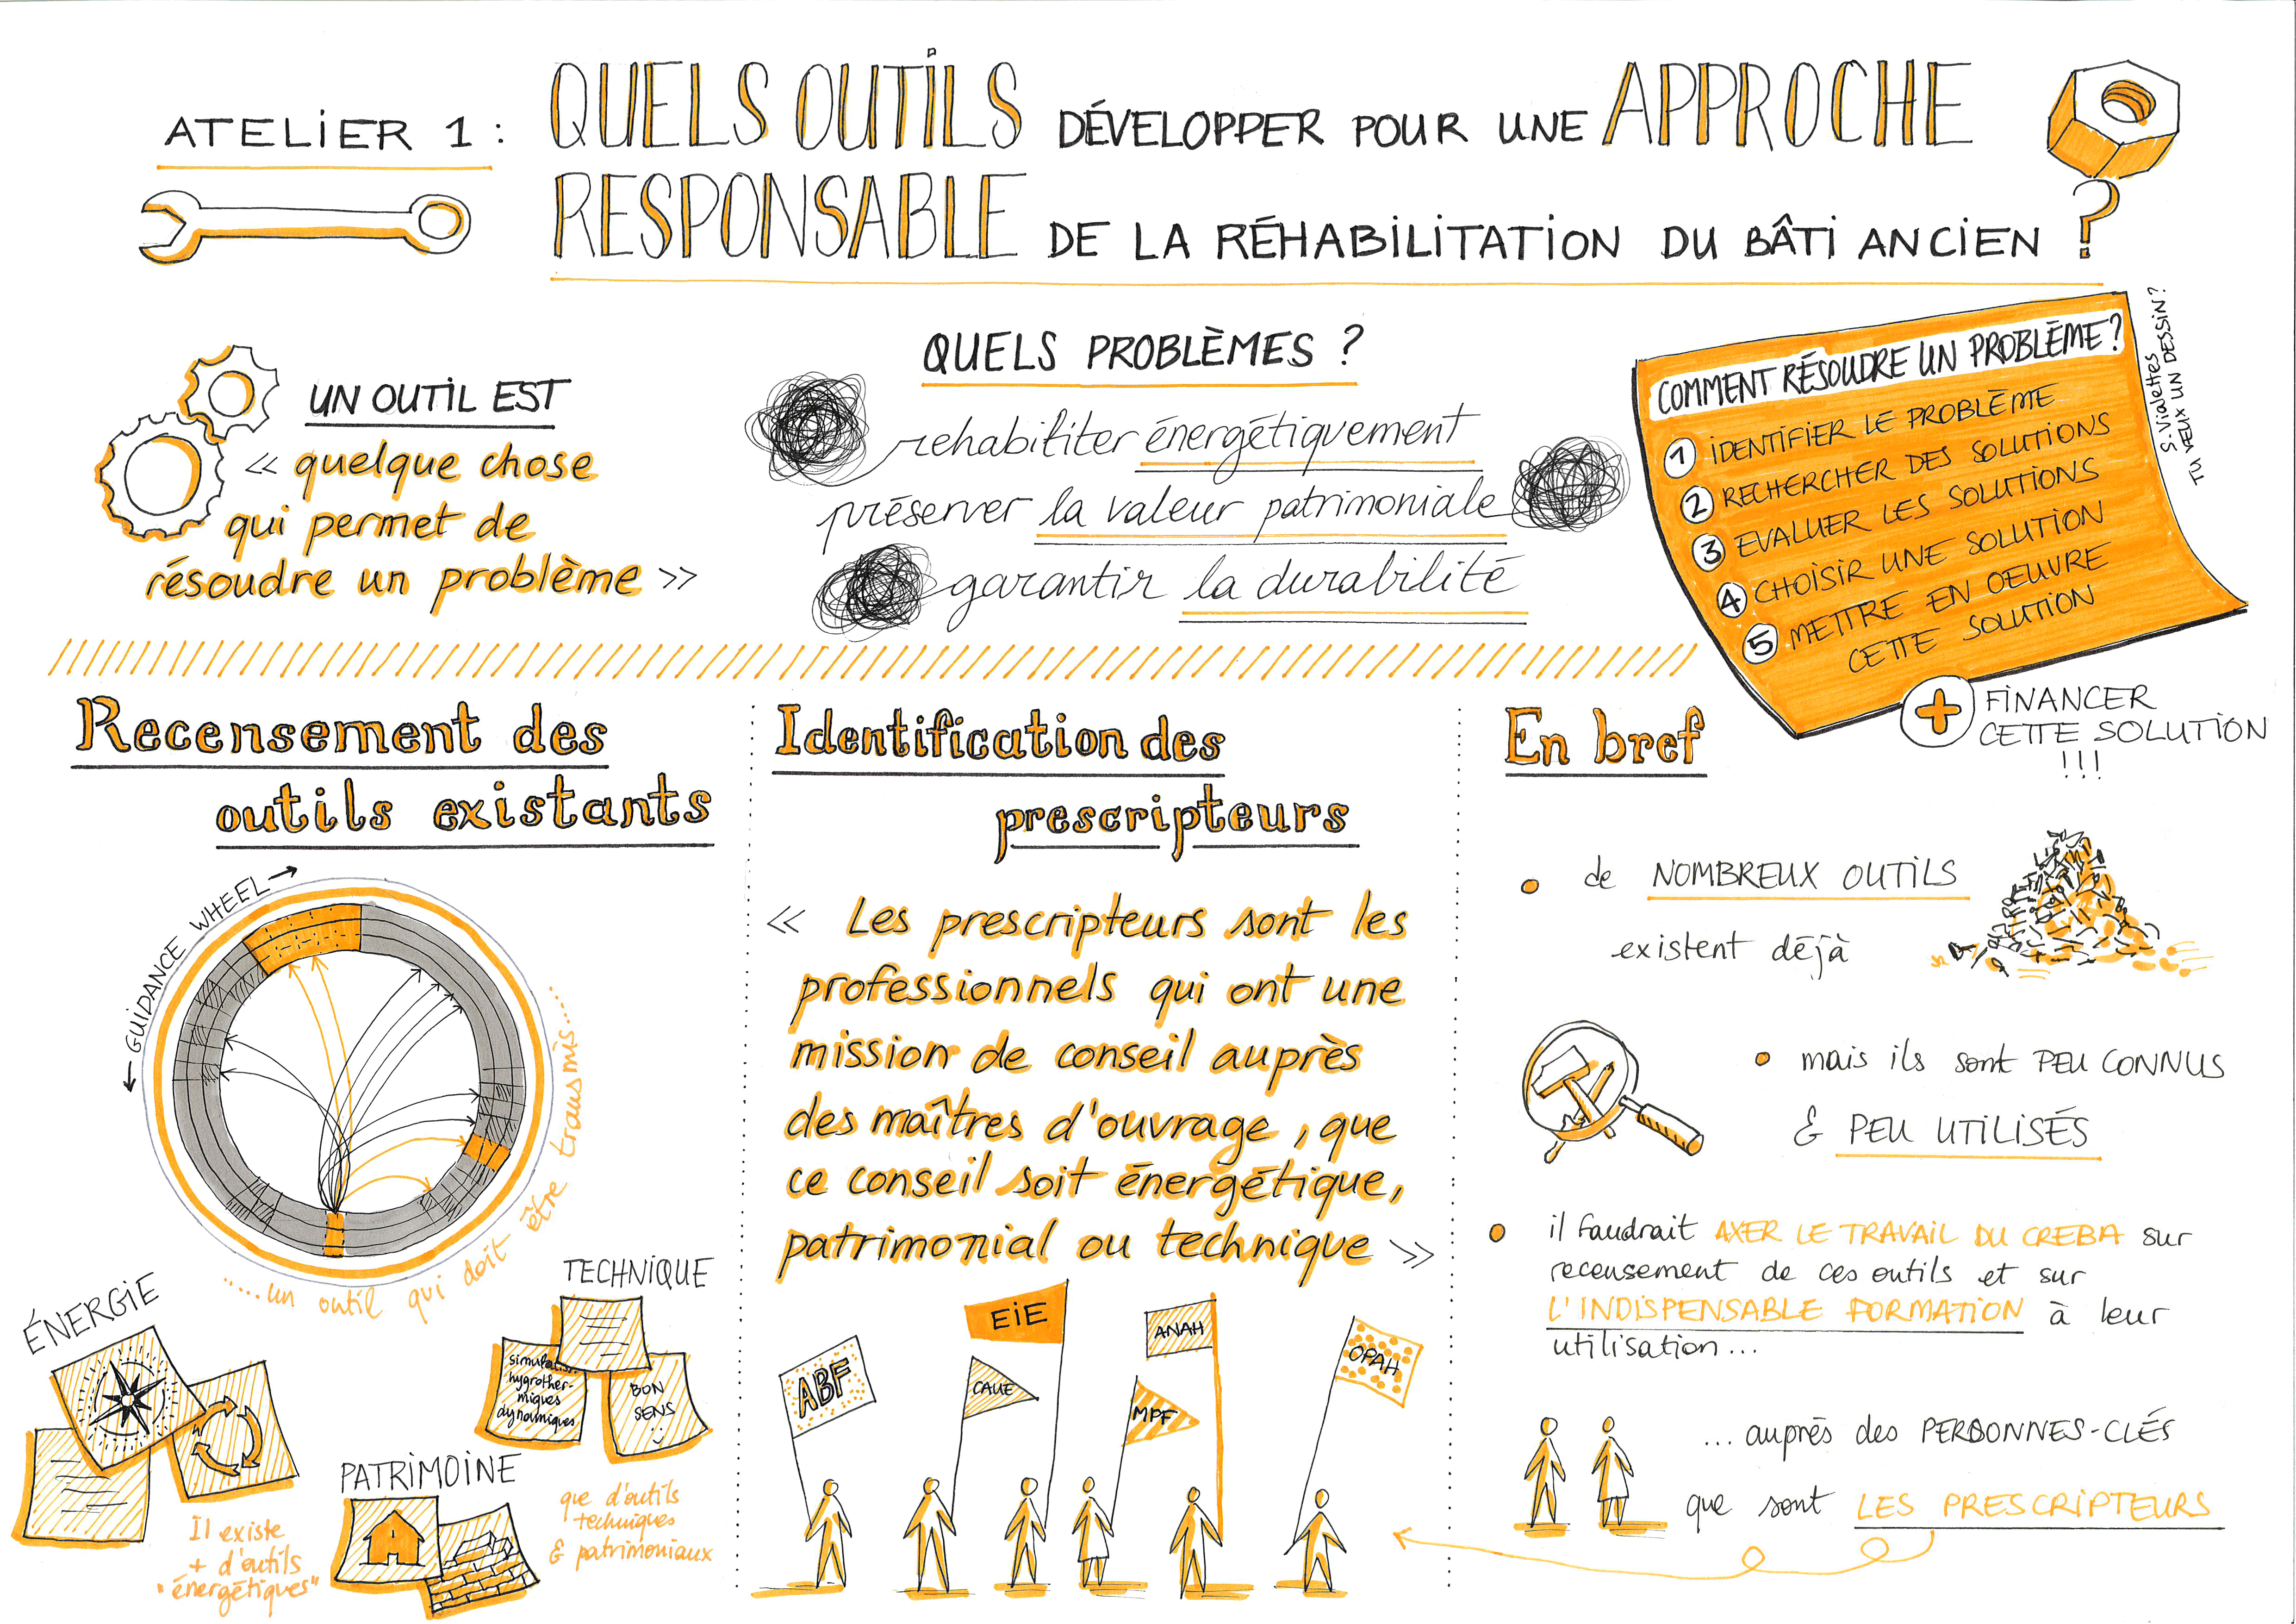 ATELIER 1 : QUELS OUTILS DÉVELOPPER POUR UNE APPROCHE
RESPONSABLE DE LA RÉHABILITATION DU BÂTI ANCIEN ?
UN OUTIL EST
« quelque chose
qui permet de
résoudre un problème »
QUELS PROBLÈMES ?
rehabiliter énergétiquement
préserver la valeur patrimoniale
garantir la durabilité
COMMENT RÉSOUDRE UN PROBLÈME ?
1 IDENTIFIER LE PROBLÈME
2 RECHERCHER DES SOLUTIONS
3 EVALUER LES SOLUTIONS
4 CHOISIR UNE SOLUTION
5 METTRE EN OEUVRE
CETTE SOLUTION
+ FINANCER
CETTE SOLUTION
!!!
S. Vialettes
TU VEUX UN DESSIN ?
Recensement des
outils existants
← GUIDANCE WHEEL →
.....un outil qui doit être transmis.....
ÉNERGIE
TECHNIQUE
simulations
hygrother-
miques
dynamiques
BON
SENS
PATRIMOINE
Il existe
+ d'outils
"énergétiques"
que d'outils
techniques
& patrimoniaux
Identification des
prescripteurs
« Les prescripteurs sont les
professionnels qui ont une
mission de conseil auprès
des maîtres d'ouvrage, que
ce conseil soit énergétique,
patrimonial ou technique »
ABF
EIE
CAUE
ANAH
MPF
OPAH
En bref
de NOMBREUX OUTILS
existent déjà
mais ils sont PEU CONNUS
& PEU UTILISÉS
il faudrait AXER LE TRAVAIL DU CREBA sur
recensement de ces outils et sur
L'INDISPENSABLE FORMATION à leur
utilisation...
... auprès des PERSONNES-CLÉS
que sont LES PRESCRIPTEURS